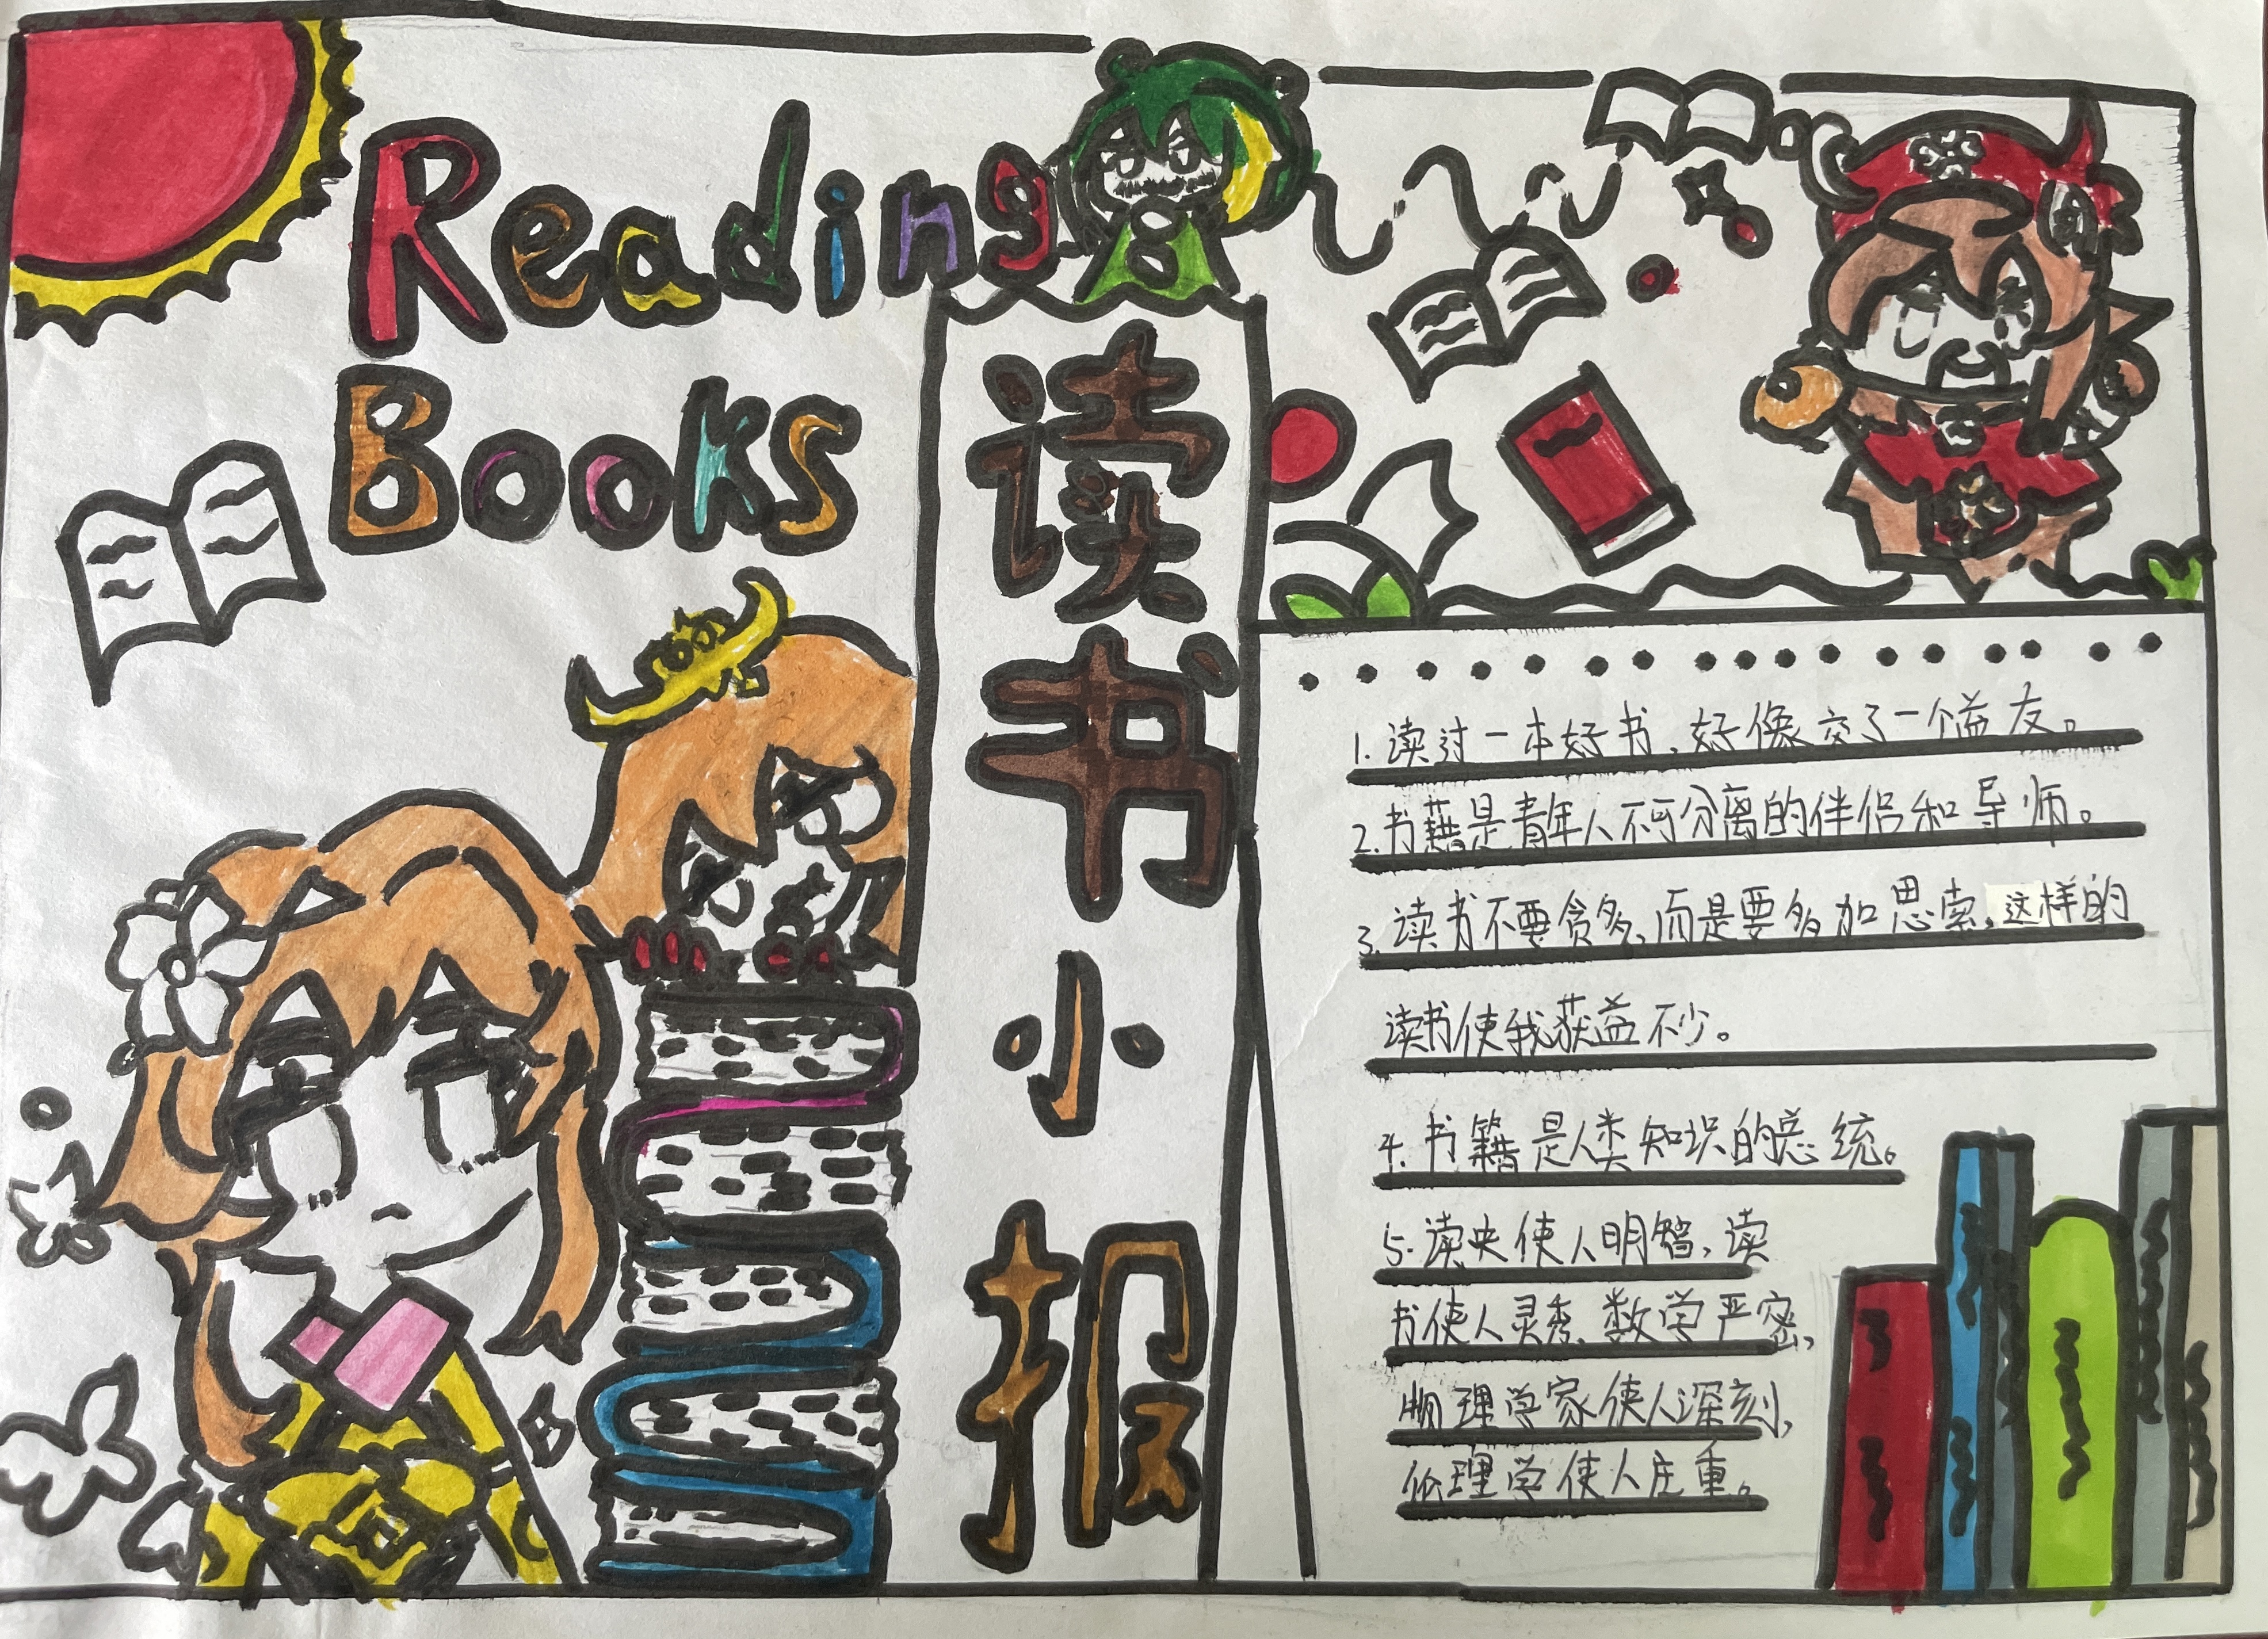 Reading
Books
读书小报
1. 读过一本好书，好像交了一个益友。
2. 书籍是青年人不可分离的伴侣和导师。
3. 读书不要贪多，而是要多加思索，这样的
读书使我获益不少。
4. 书籍是人类知识的总统。
5. 读史使人明智，读
书使人灵秀、数学严密，
物理学家使人深刻，
伦理学使人庄重。